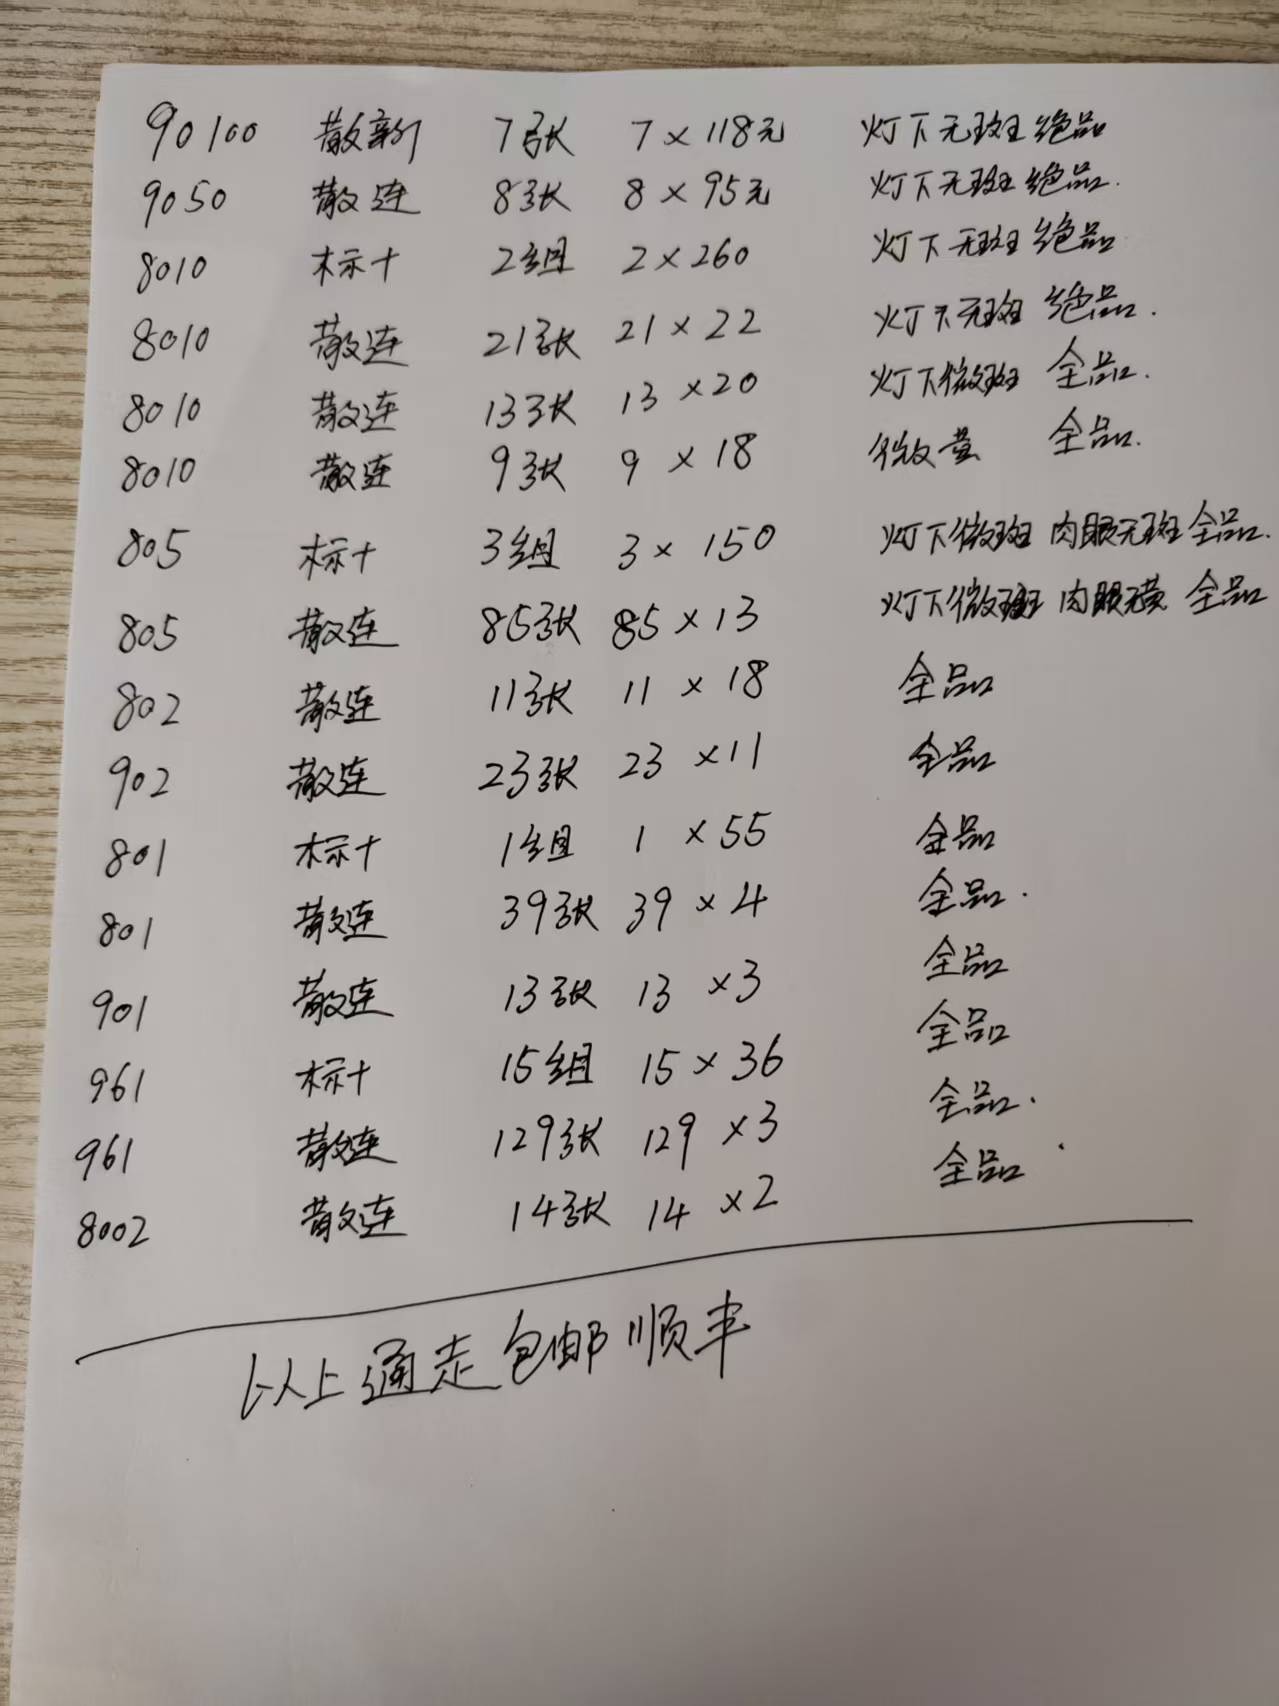 90100 散新 7张 7×118元 灯下无斑 绝品
9050 散连 8张 8×95元 灯下无斑 绝品.
8010 标十 2组 2×260 灯下无斑 绝品
8010 散连 21张 21×22 灯下无斑 绝品.
8010 散连 13张 13×20 灯下微斑 全品.
8010 散连 9张 9×18 微黄 全品.
805 标十 3组 3×150 灯下微斑 肉眼无斑 全品.
805 散连 85张 85×13 灯下微斑 肉眼 全品
802 散连 11张 11×18 全品
902 散连 23张 23×11 全品
801 标十 1组 1×55 全品
801 散连 39张 39×4 全品.
901 散连 13张 13×3 全品
961 标十 15组 15×36 全品
961 散连 129张 129×3 全品.
8002 散连 14张 14×2 全品
以上通走包邮顺丰